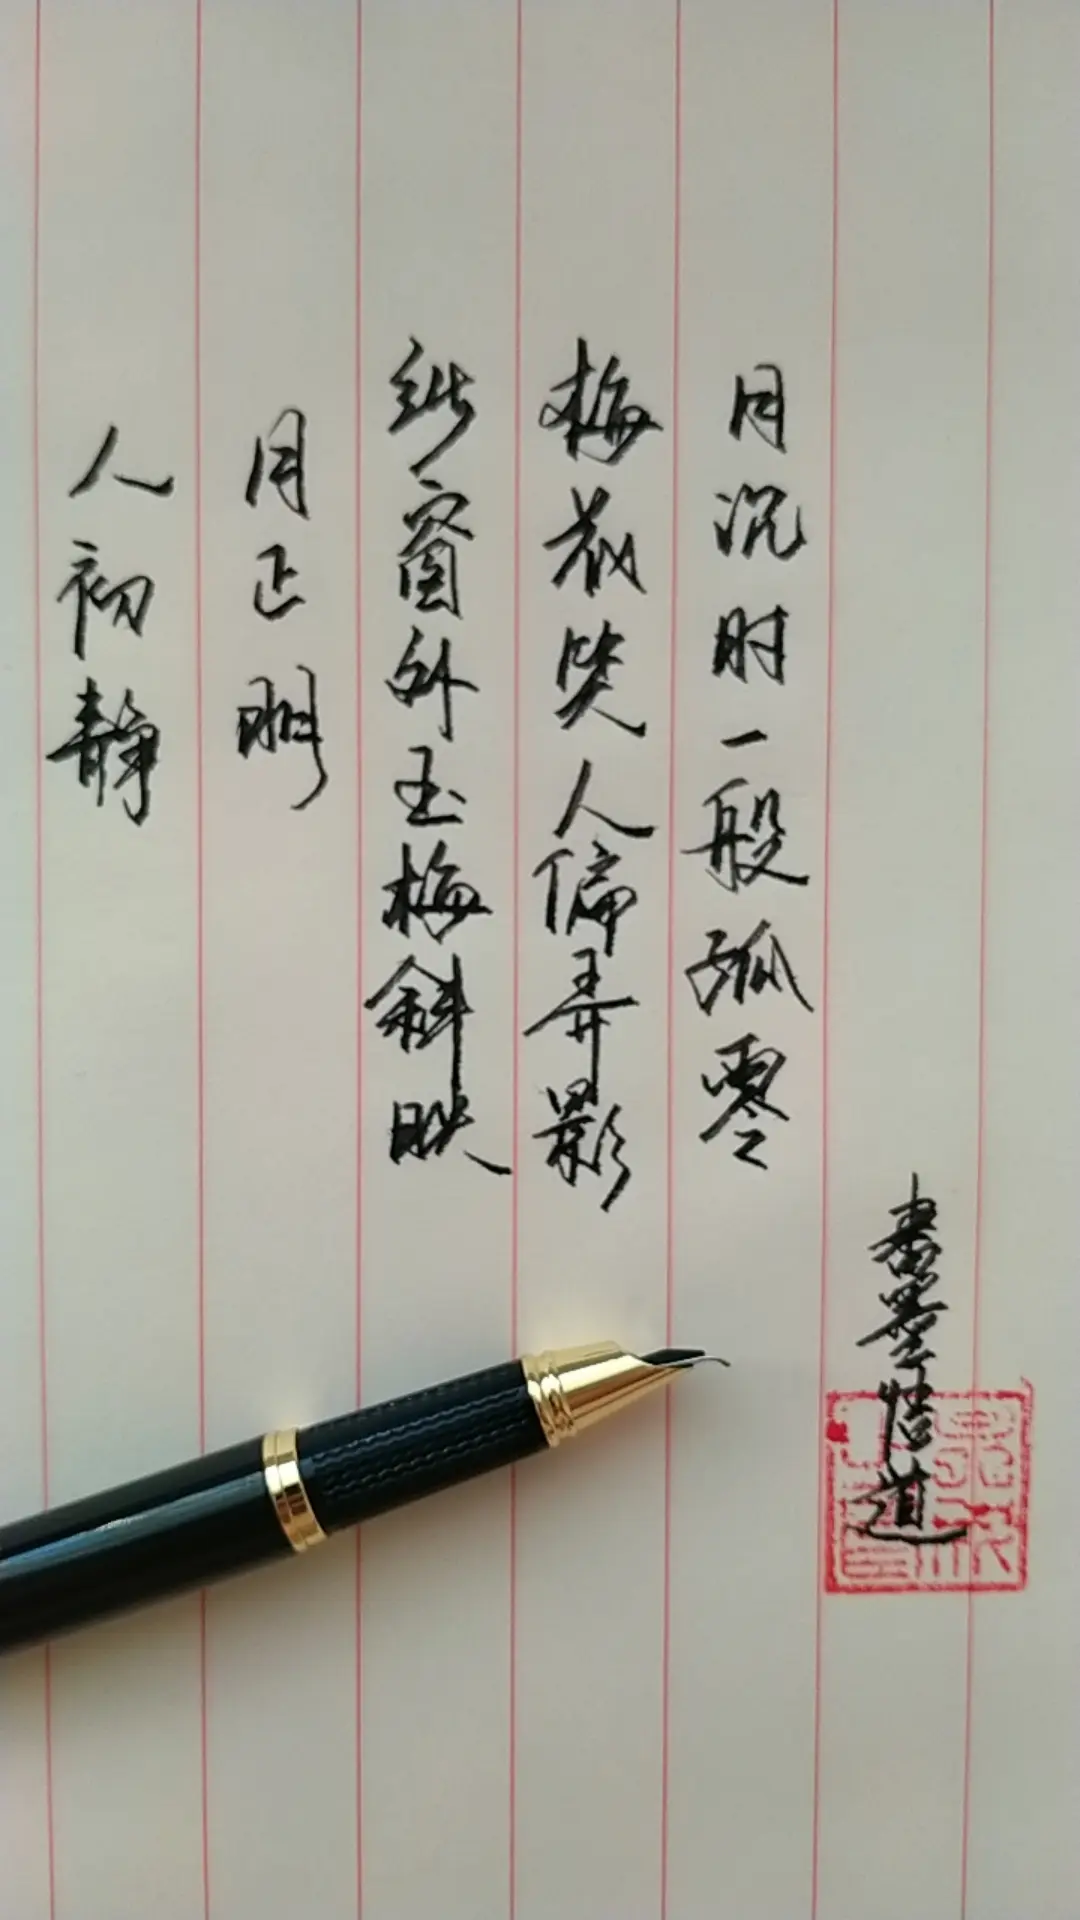 人初静
月正明
纱窗外玉梅斜映
梅花笑人偏弄影
月沉时一般孤零
書墨悟道